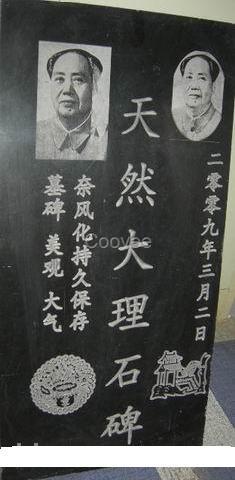 二零零九年三月二日
天然大理石碑
奈风化持久保存
墓碑 美观 大气
Cooyee